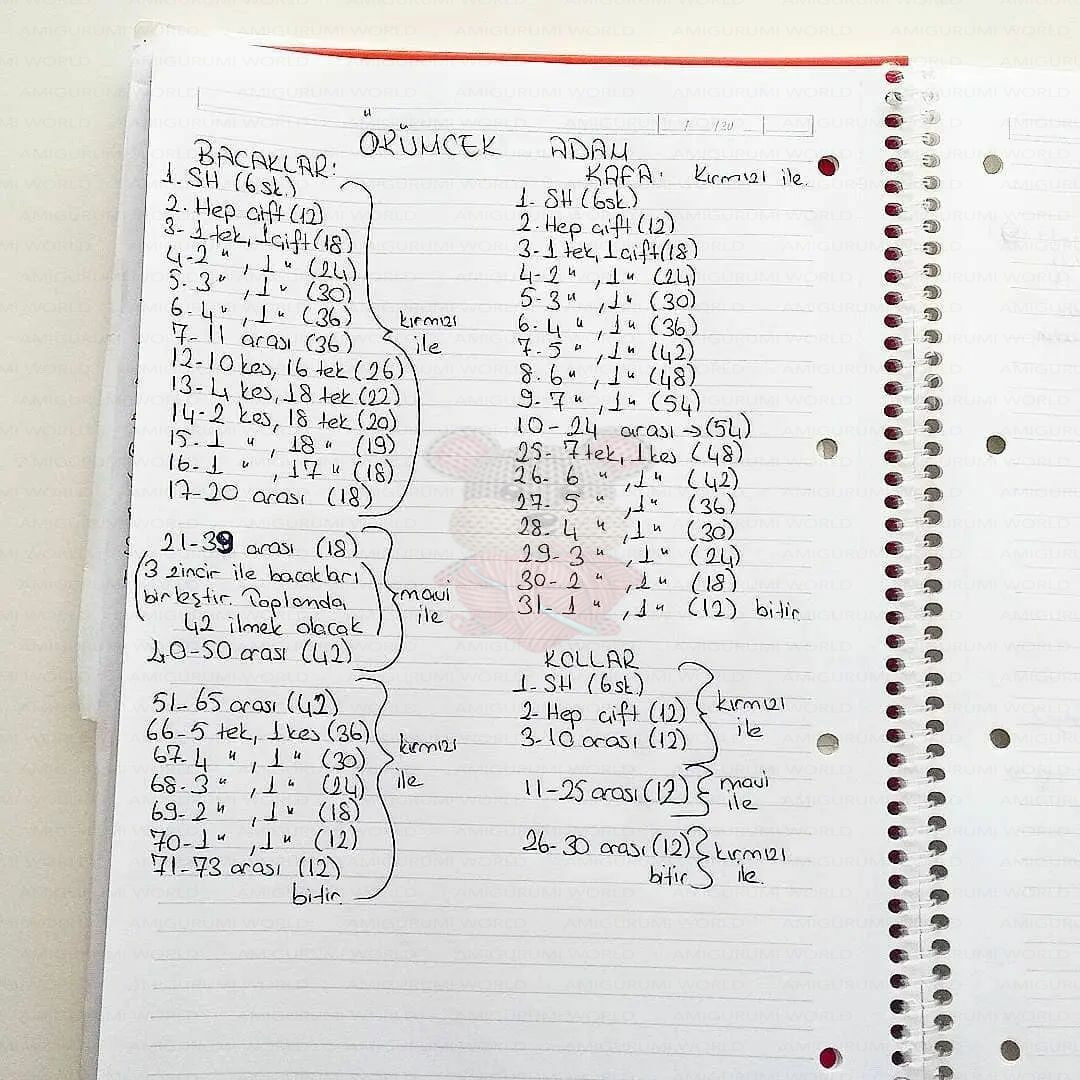 ÖRÜMCEK ADAM
1 /20
BACAKLAR:
1. SH (6sk)
2. Hep çift (12)
3-1 tek, 1çift (18)
4-2 " , 1 " (24)
5.3 " , 1 " (30)
6.4 " , 1 " (36)
7-11 arası (36)
12-10 kes, 16 tek (26)
13-4 kes, 18 tek (22)
14-2 kes, 18 tek (20)
15-1 " , 18 " (19)
16-1 " , 17 " (18)
17-20 arası (18)
kırmızı
ile
21-39 arası (18)
(3 zincir ile bacakları
birleştir. Toplamda
42 ilmek olacak)
40-50 arası (42)
mavi
ile
51-65 arası (42)
66-5 tek, 1kes (36)
67-4 " , 1 " (30)
68-3 " , 1 " (24)
69-2 " , 1 " (18)
70-1 " , 1 " (12)
71-73 arası (12)
bitir
kırmızı
ile
KAFA: Kırmızı ile
1- SH (6sk)
2-Hep çift (12)
3-1 tek, 1çift (18)
4-2 " , 1 " (24)
5-3 " , 1 " (30)
6-4 " , 1 " (36)
7-5 " , 1 " (42)
8.6 " , 1 " (48)
9-7 " , 1 " (54)
10-24 arası → (54)
25-7 tek, 1 kes (48)
26-6 " , 1 " (42)
27-5 " , 1 " (36)
28-4 " , 1 " (30)
29-3 " , 1 " (24)
30-2 " , 1 " (18)
31-1 " , 1 " (12) bitir
KOLLAR
1. SH (6sk)
2-Hep çift (12)
3-10 arası (12)
kırmızı
ile
11-25 arası (12)
mavi
ile
26-30 arası (12)
bitir
kırmızı
ile
AMIGURUMI WORLD